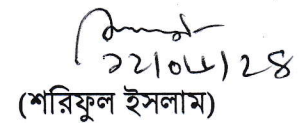 ২২/০৮/২৪
(শরিফুল ইসলাম)